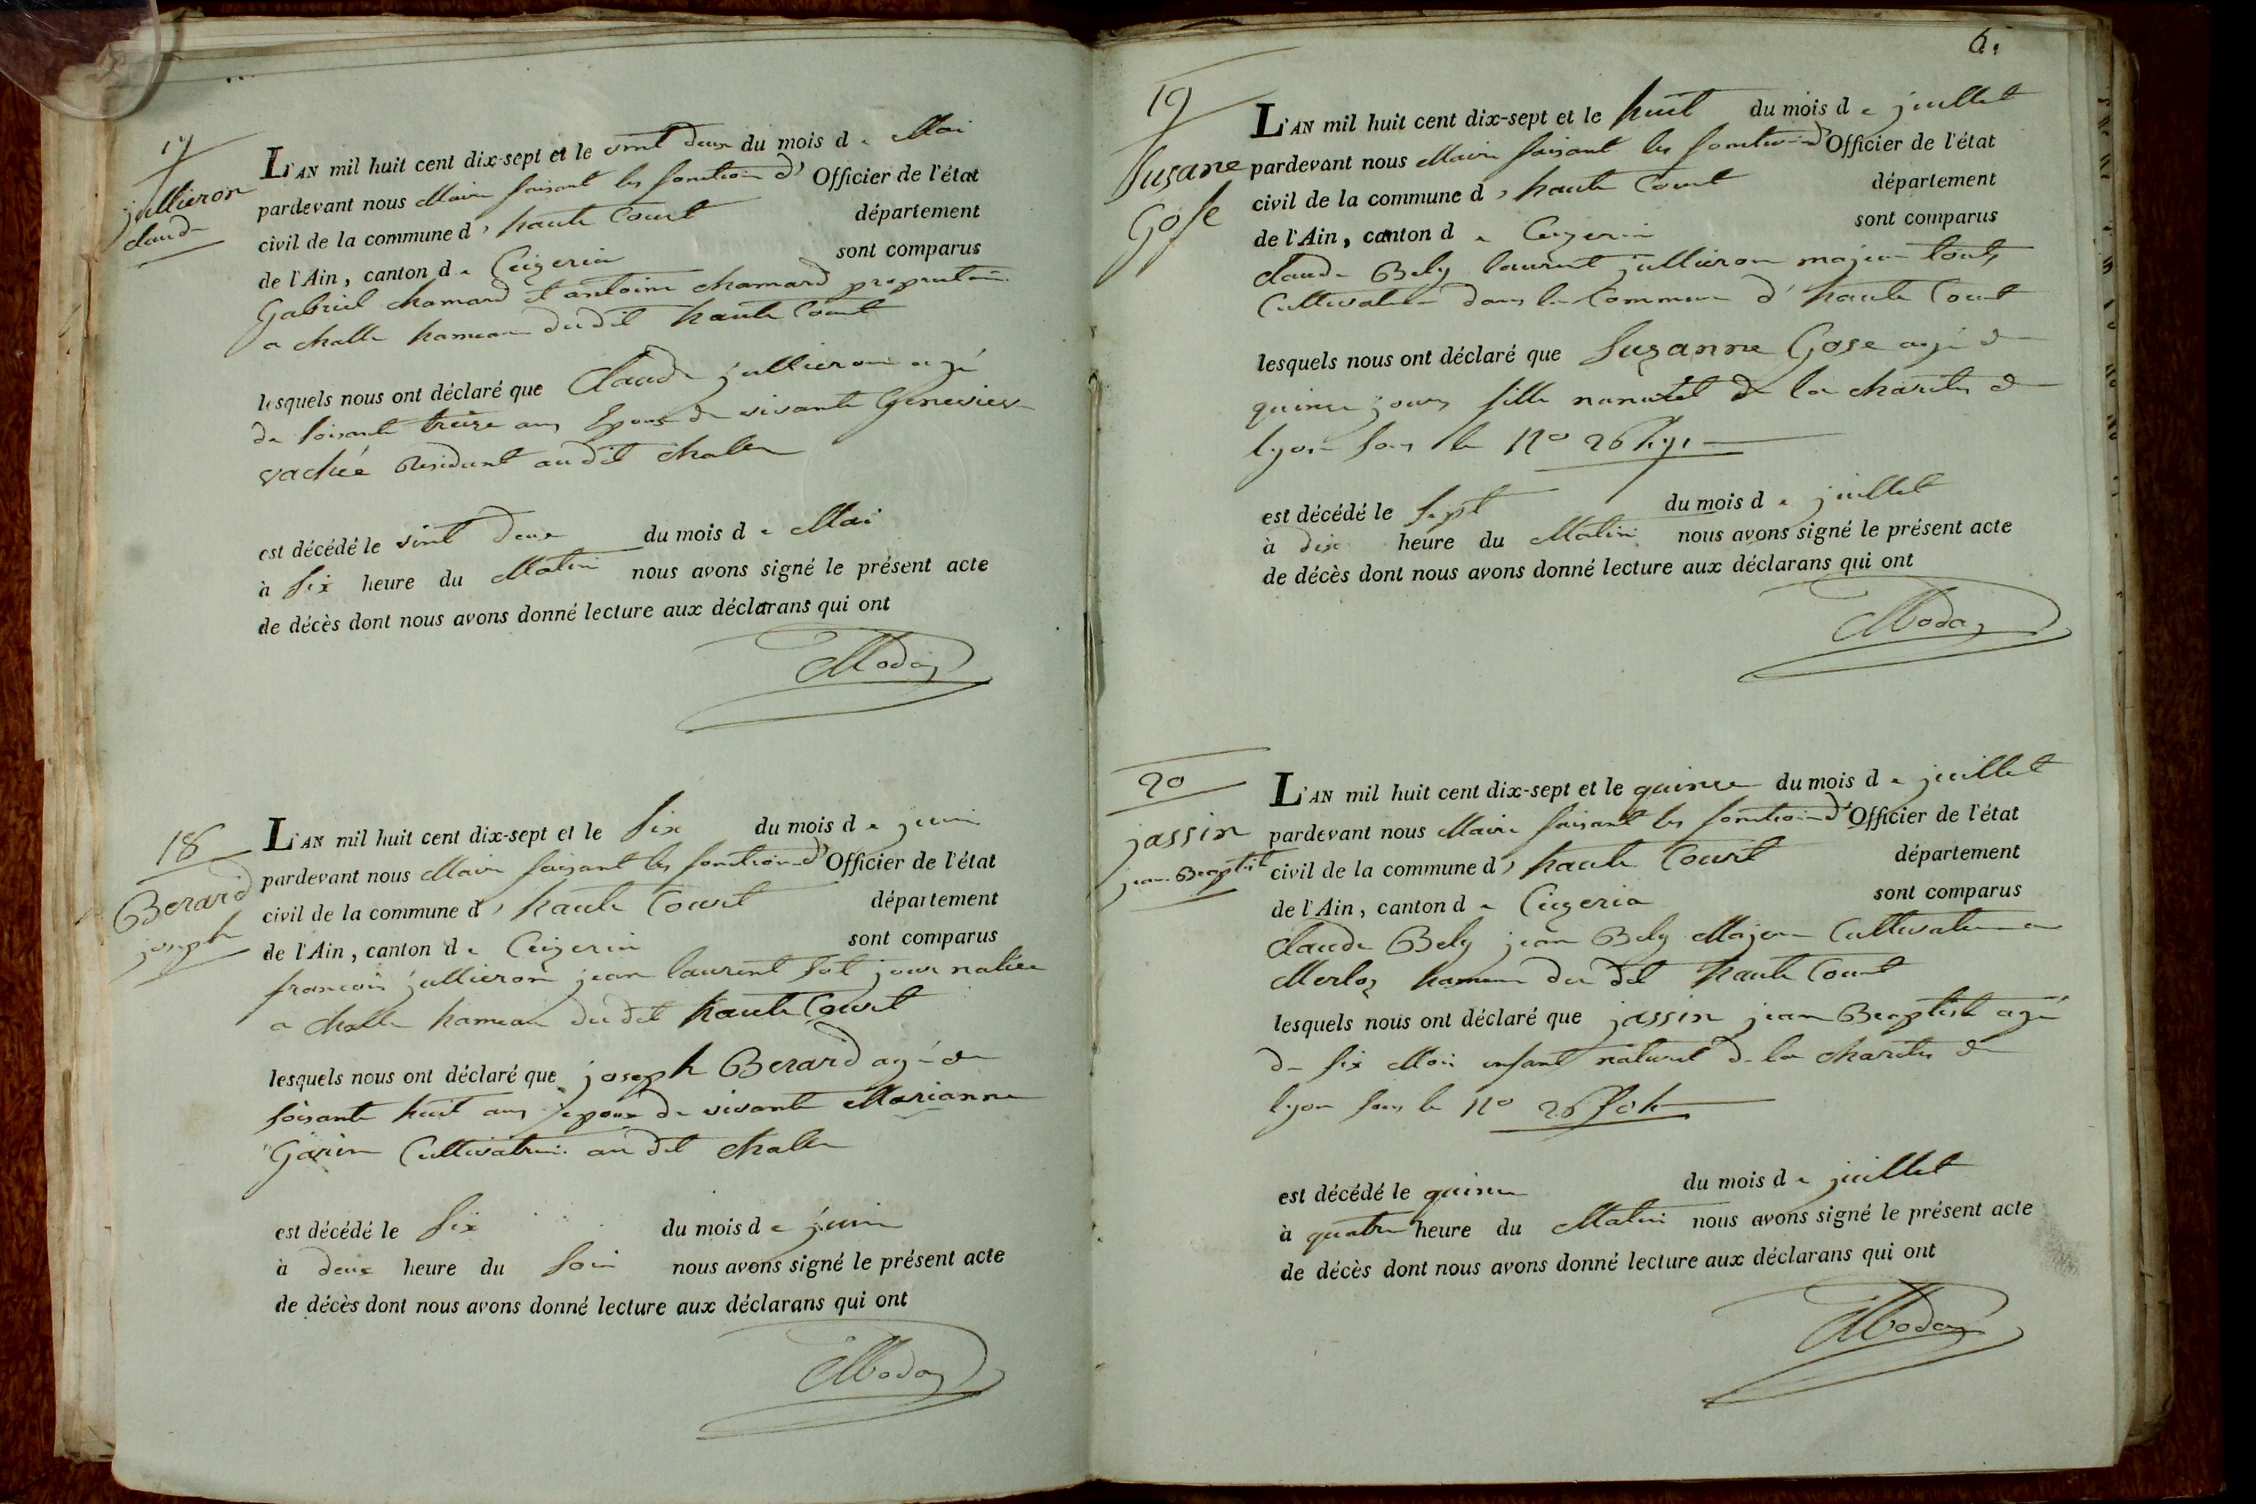 17
jullieron
claude
L'AN mil huit cent dix-sept et le vint deux du mois de Mai
pardevant nous Maire faisant les fonction d'Officier de l'état
civil de la commune d'haute Court département
de l'Ain, canton de Ceizeria sont comparus
Gabriel chamard et antoine chamard proprietaire
a challe hameau dudit haute Court
lesquels nous ont déclaré que Claude jullieron agé
de soisante treize ans Epoux de vivante Genevieve
vachée Residant audit chalee
est décédé le vint deux du mois de Mai
à six heure du Matin nous avons signé le présent acte
de décès dont nous avons donné lecture aux déclarans qui ont
18
Berard
joseph
L'AN mil huit cent dix-sept et le six du mois de juin
pardevant nous Maire faisant les fonction d'Officier de l'état
civil de la commune d'haute Court département
de l'Ain, canton de Ceizeria sont comparus
francois jullieron jean laurent journalier
a challe hameau du dit haute Court
lesquels nous ont déclaré que joseph Berard agé de
soisante huit ans epoux de vivante Marianne
Garin au dit chalee
est décédé le six du mois de juin
à deux heure du soir nous avons signé le présent acte
de décès dont nous avons donné lecture aux déclarans qui ont
6.
19
Suzane
Gose
L'AN mil huit cent dix-sept et le huit du mois de juillet
pardevant nous Maire faisant les fonction d'Officier de l'état
civil de la commune d'haute Court département
de l'Ain, canton de Ceizeria sont comparus
Claude Bely laurent jullieron majeur touts
Cultivateur dans la Commune d'haute Court
lesquels nous ont déclaré que Suzanne Gose agé de
quinze jours fille de la charité de
lyon sous le no
est décédé le sept du mois de juillet
à dix heure du Matin nous avons signé le présent acte
de décès dont nous avons donné lecture aux déclarans qui ont
20
jassin
jean Beaptist
L'AN mil huit cent dix-sept et le quinze du mois de juillet
pardevant nous Maire faisant les fonction d'Officier de l'état
civil de la commune d'haute Court département
de l'Ain, canton de Ceizeria sont comparus
Claude Bely jean Bely Majeur Cultivateur a
Merloz hameau du dit haute Court
lesquels nous ont déclaré que jassin jean Beaptiste agé
de six Moi enfant naturel de la charité de
lyon sous le no
est décédé le quinze du mois de juillet
à quatre heure du Matin nous avons signé le présent acte
de décès dont nous avons donné lecture aux déclarans qui ont